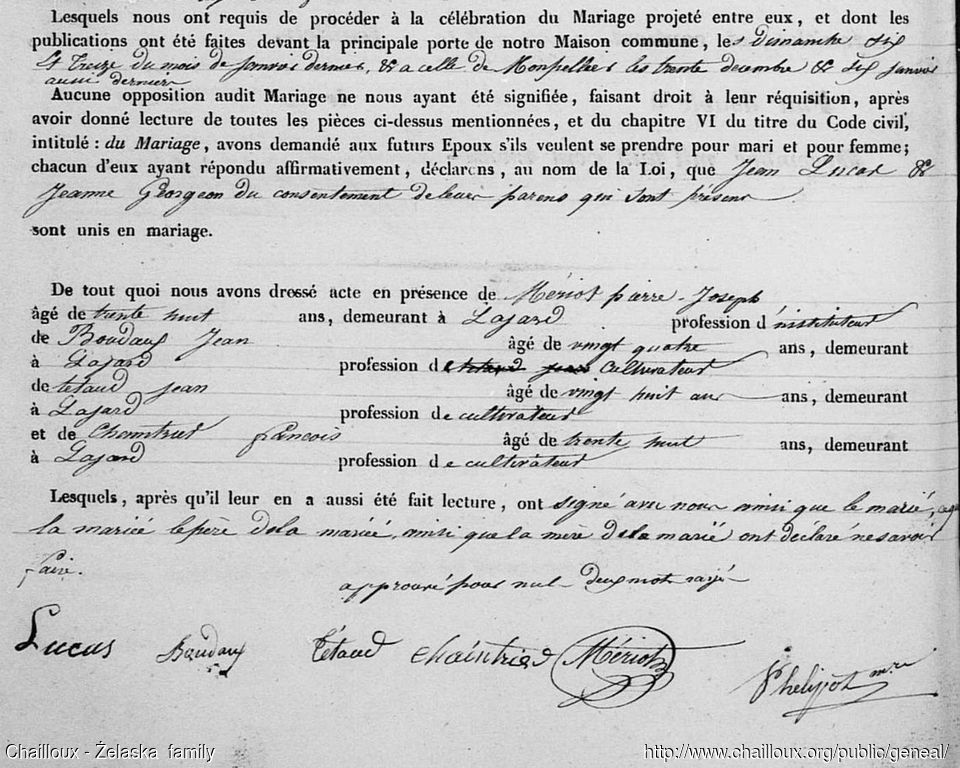 Lesquels nous ont requis de procéder à la célébration du Mariage projeté entre eux, et dont les
publications ont été faites devant la principale porte de notre Maison commune, les Dimanche Six
& treize du mois de Janvier dernier, & a celle de Monpellier les trente decembre & Six Janvier
aussi dernier
Aucune opposition audit Mariage ne nous ayant été signifiée, faisant droit à leur réquisition, après
avoir donné lecture de toutes les pièces ci-dessus mentionnées, et du chapitre VI du titre du Code civil,
intitulé : du Mariage, avons demandé aux futurs Epoux s'ils veulent se prendre pour mari et pour femme;
chacun d'eux ayant répondu affirmativement, déclarons, au nom de la Loi, que Jean Lucas &
Jeanne Georgeon du consentement de leurs parens qui sont présens
sont unis en mariage.
De tout quoi nous avons drossé acte en présence de Mériot pierre Joseph
âgé de trente huit ans, demeurant à Lajard profession d'instituteur
de Boudaux Jean âgé de vingt quatre ans, demeurant
à Lajard profession de Cultivateur
de tétaud jean âgé de vingt huit ans ans, demeurant
à Lajard profession de cultivateur
et de Chaintrier francois âgé de trente huit ans, demeurant
à Lajard profession de cultivateur
Lesquels, après qu'il leur en a aussi été fait lecture, ont signé avec nous ainsi que le marié,
la mariée le père de la mariée, ainsi que la mère de la mariée ont déclaré ne savoir
faire.
approuvé pour nul deux mot rayé
Lucas Boudaux Tétaud Chaintrier Mériot
Phelipot mre
Chailloux - Želaska family http://www.chailloux.org/public/geneal/